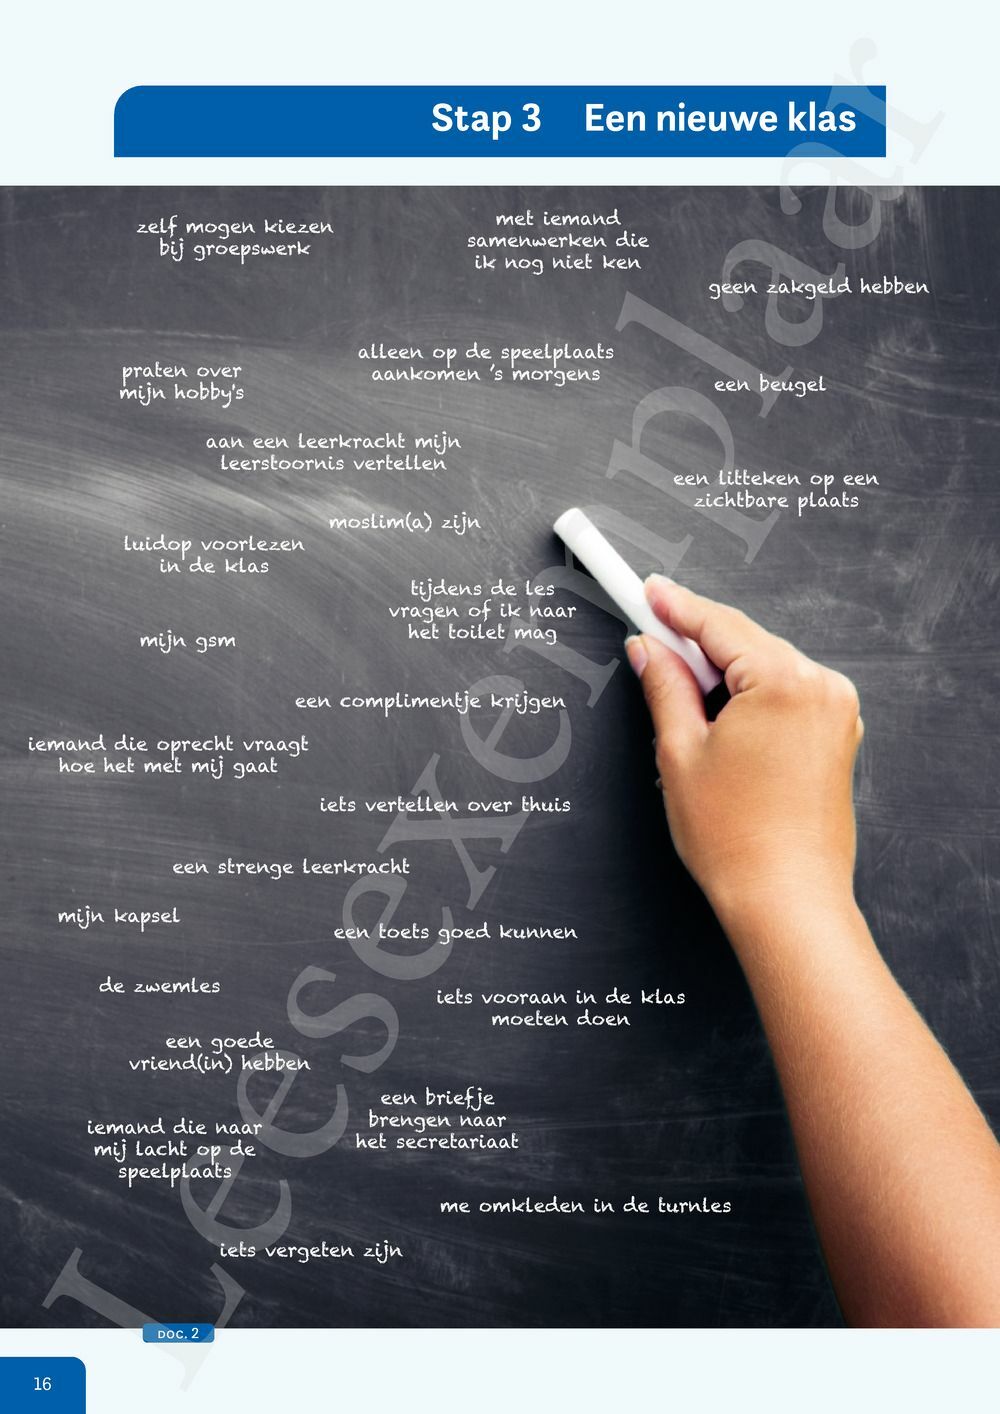 Stap 3 Een nieuwe klas
zelf mogen kiezen
bij groepswerk
met iemand
samenwerken die
ik nog niet ken
geen zakgeld hebben
alleen op de speelplaats
aankomen 's morgens
praten over
mijn hobby's
een beugel
aan een leerkracht mijn
leerstoornis vertellen
een litteken op een
zichtbare plaats
moslim(a) zijn
luidop voorlezen
in de klas
tijdens de les
vragen of ik naar
het toilet mag
mijn gsm
een complimentje krijgen
iemand die oprecht vraagt
hoe het met mij gaat
iets vertellen over thuis
een strenge leerkracht
mijn kapsel
een toets goed kunnen
de zwemles
iets vooraan in de klas
moeten doen
een goede
vriend(in) hebben
een briefje
brengen naar
het secretariaat
iemand die naar
mij lacht op de
speelplaats
me omkleden in de turnles
iets vergeten zijn
DOC. 2
16
Leesexemplaar